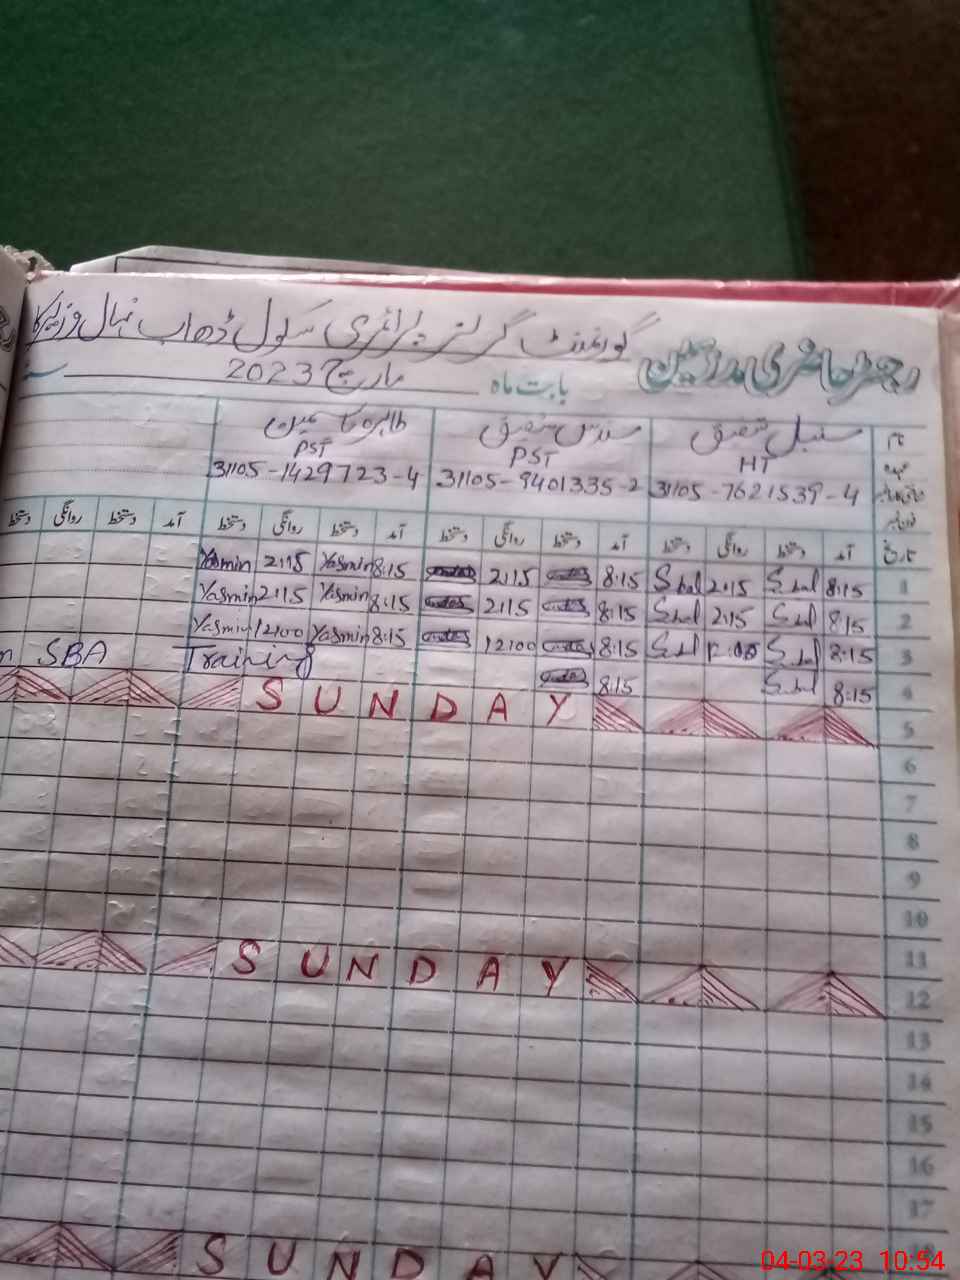 گورنمنٹ گرلز پرائمری سکول ڈھاب نہال وزیرکا
رجسٹر حاضری مدرسین
بابت ماہ مارچ 2023
نام سنبل شفیق سندس شفیق طاہرہ یاسمین
عہدہ HT PST PST
31105-7621539-4 31105-9401335-2 31105-1429723-4
تاریخ آمد دستخط روانگی دستخط آمد دستخط روانگی دستخط آمد دستخط روانگی دستخط آمد دستخط روانگی دستخط
1 8:15 Sbal 2:15 Sbal 8:15 2:15 8:15 Yasmin 2:15 Yasmin
2 8:15 Sbal 2:15 Sbal 8:15 2:15 8:15 Yasmin 2:15 Yasmin
3 8:15 Sbal 12:00 Sbal 8:15 12:00 8:15 Yasmin 12:00 Yasmin
4 8:15 Sbal 8:15 SBA Training
5 SUNDAY
6
7
8
9
10
11
12 SUNDAY
13
14
15
16
17
18 SUNDAY
04-03-23 10:54